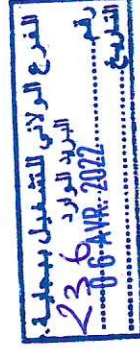 الفرع الولائي للتشغيل ببجاية
البريد الوارد
رقم 236
التاريخ 06 AVR. 2022